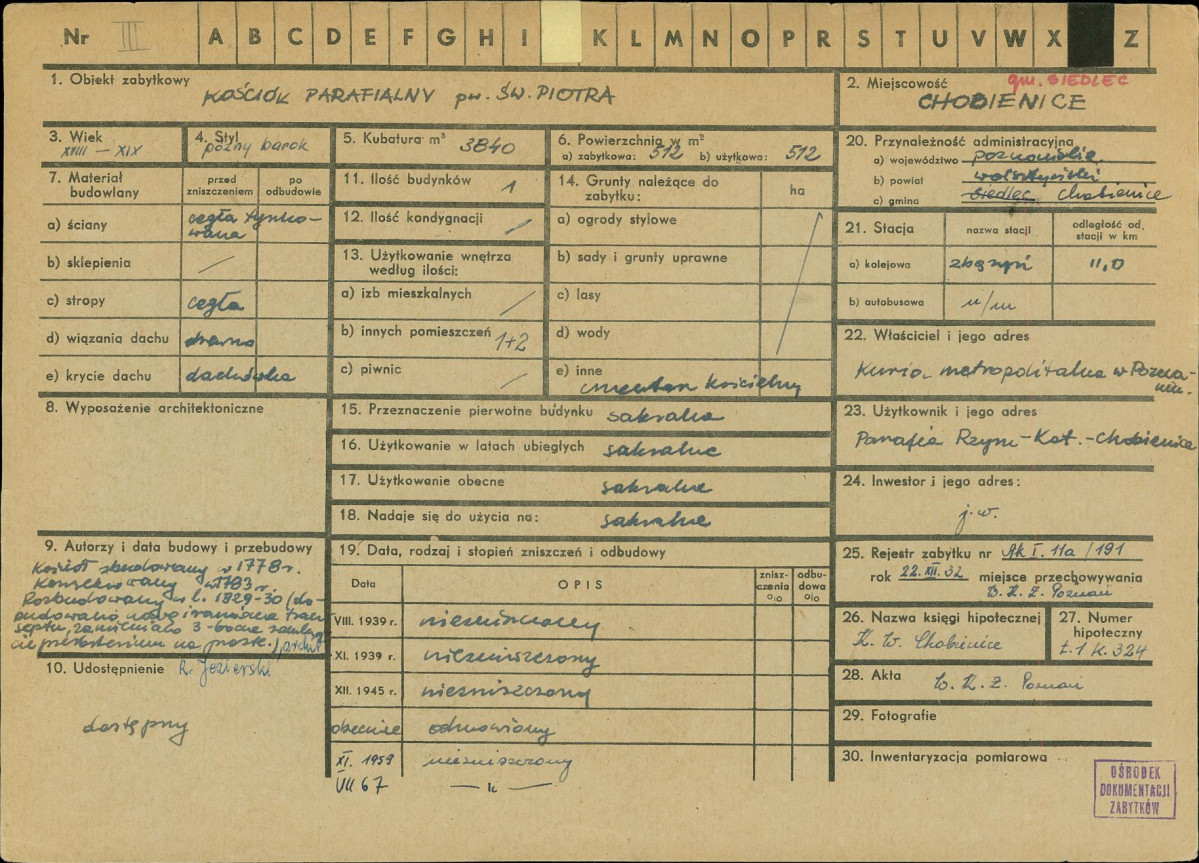 Nr III A B C D E F G H I K L M N O P R S T U V W X Z
1. Obiekt zabytkowy
KOŚCIÓŁ PARAFIALNY pw. ŚW. PIOTRA
2. Miejscowość
gm. SIEDLEC
CHOBIENICE
3. Wiek
XVIII – XIX
4. Styl
późny barok
5. Kubatura m³ 3840
6. Powierzchnia w m²
a) zabytkowa: 512 b) użytkowa: 512
7. Materiał budowlany
przed zniszczeniem
po odbudowie
a) ściany cegła tynko-
wana
b) sklepienia /
c) stropy cegła
d) wiązania dachu drewno
e) krycie dachu dachówka
8. Wyposażenie architektoniczne
9. Autorzy i data budowy i przebudowy
Kościół zbudowany w 1778 r.
Konsekrowany w 1783 r.
Rozbudowany w l. 1829-30 (do-
budowano nawę i ramiona tran
septu, zamieniono 3-boczne zamknię
cie prezbiterium na prost.) archit
R. Jezierski
10. Udostępnienie
dostępny
11. Ilość budynków 1
12. Ilość kondygnacji /
13. Użytkowanie wnętrza
według ilości:
a) izb mieszkalnych /
b) innych pomieszczeń 1+2
c) piwnic /
14. Grunty należące do
zabytku:
ha
a) ogrody stylowe
b) sady i grunty uprawne
c) lasy
d) wody
e) inne
cmentarz kościelny
15. Przeznaczenie pierwotne budynku sakralne
16. Użytkowanie w latach ubiegłych sakralne
17. Użytkowanie obecne sakralne
18. Nadaje się do użycia na: sakralne
19. Data, rodzaj i stopień zniszczeń i odbudowy
Data
OPIS
znisz-
czenia
%
odbu-
dowa
%
VIII. 1939 r. niezniszczony
XI. 1939 r. niezniszczony
XII. 1945 r. niezniszczony
obecnie odnowiony
XI. 1959 niezniszczony
VII 67 — „ —
20. Przynależność administracyjna
a) województwo poznańskie
b) powiat wolsztyński
c) gmina Siedlec Chobienice
21. Stacja
nazwa stacji
odległość od
stacji w km
a) kolejowa Zbąszyń 11,0
b) autobusowa n/m
22. Właściciel i jego adres
Kuria metropolitalna w Pozna-
niu.
23. Użytkownik i jego adres
Parafia Rzym-Kat. - Chobienice
24. Inwestor i jego adres:
j.w.
25. Rejestr zabytku nr Ak I. 11a/191
rok 22.XII.32 miejsce przechowywania
W. K. Z. Poznań
26. Nazwa księgi hipotecznej
K. W. Chobienice
27. Numer
hipoteczny
t. 1 k. 324
28. Akta W. K. Z. Poznań
29. Fotografie
30. Inwentaryzacja pomiarowa
OŚRODEK
DOKUMENTACJI
ZABYTKÓW